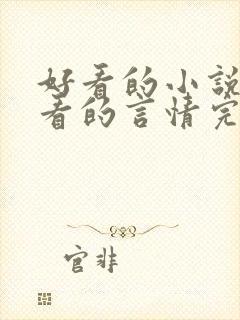 好看的小說
看的言情完
官非